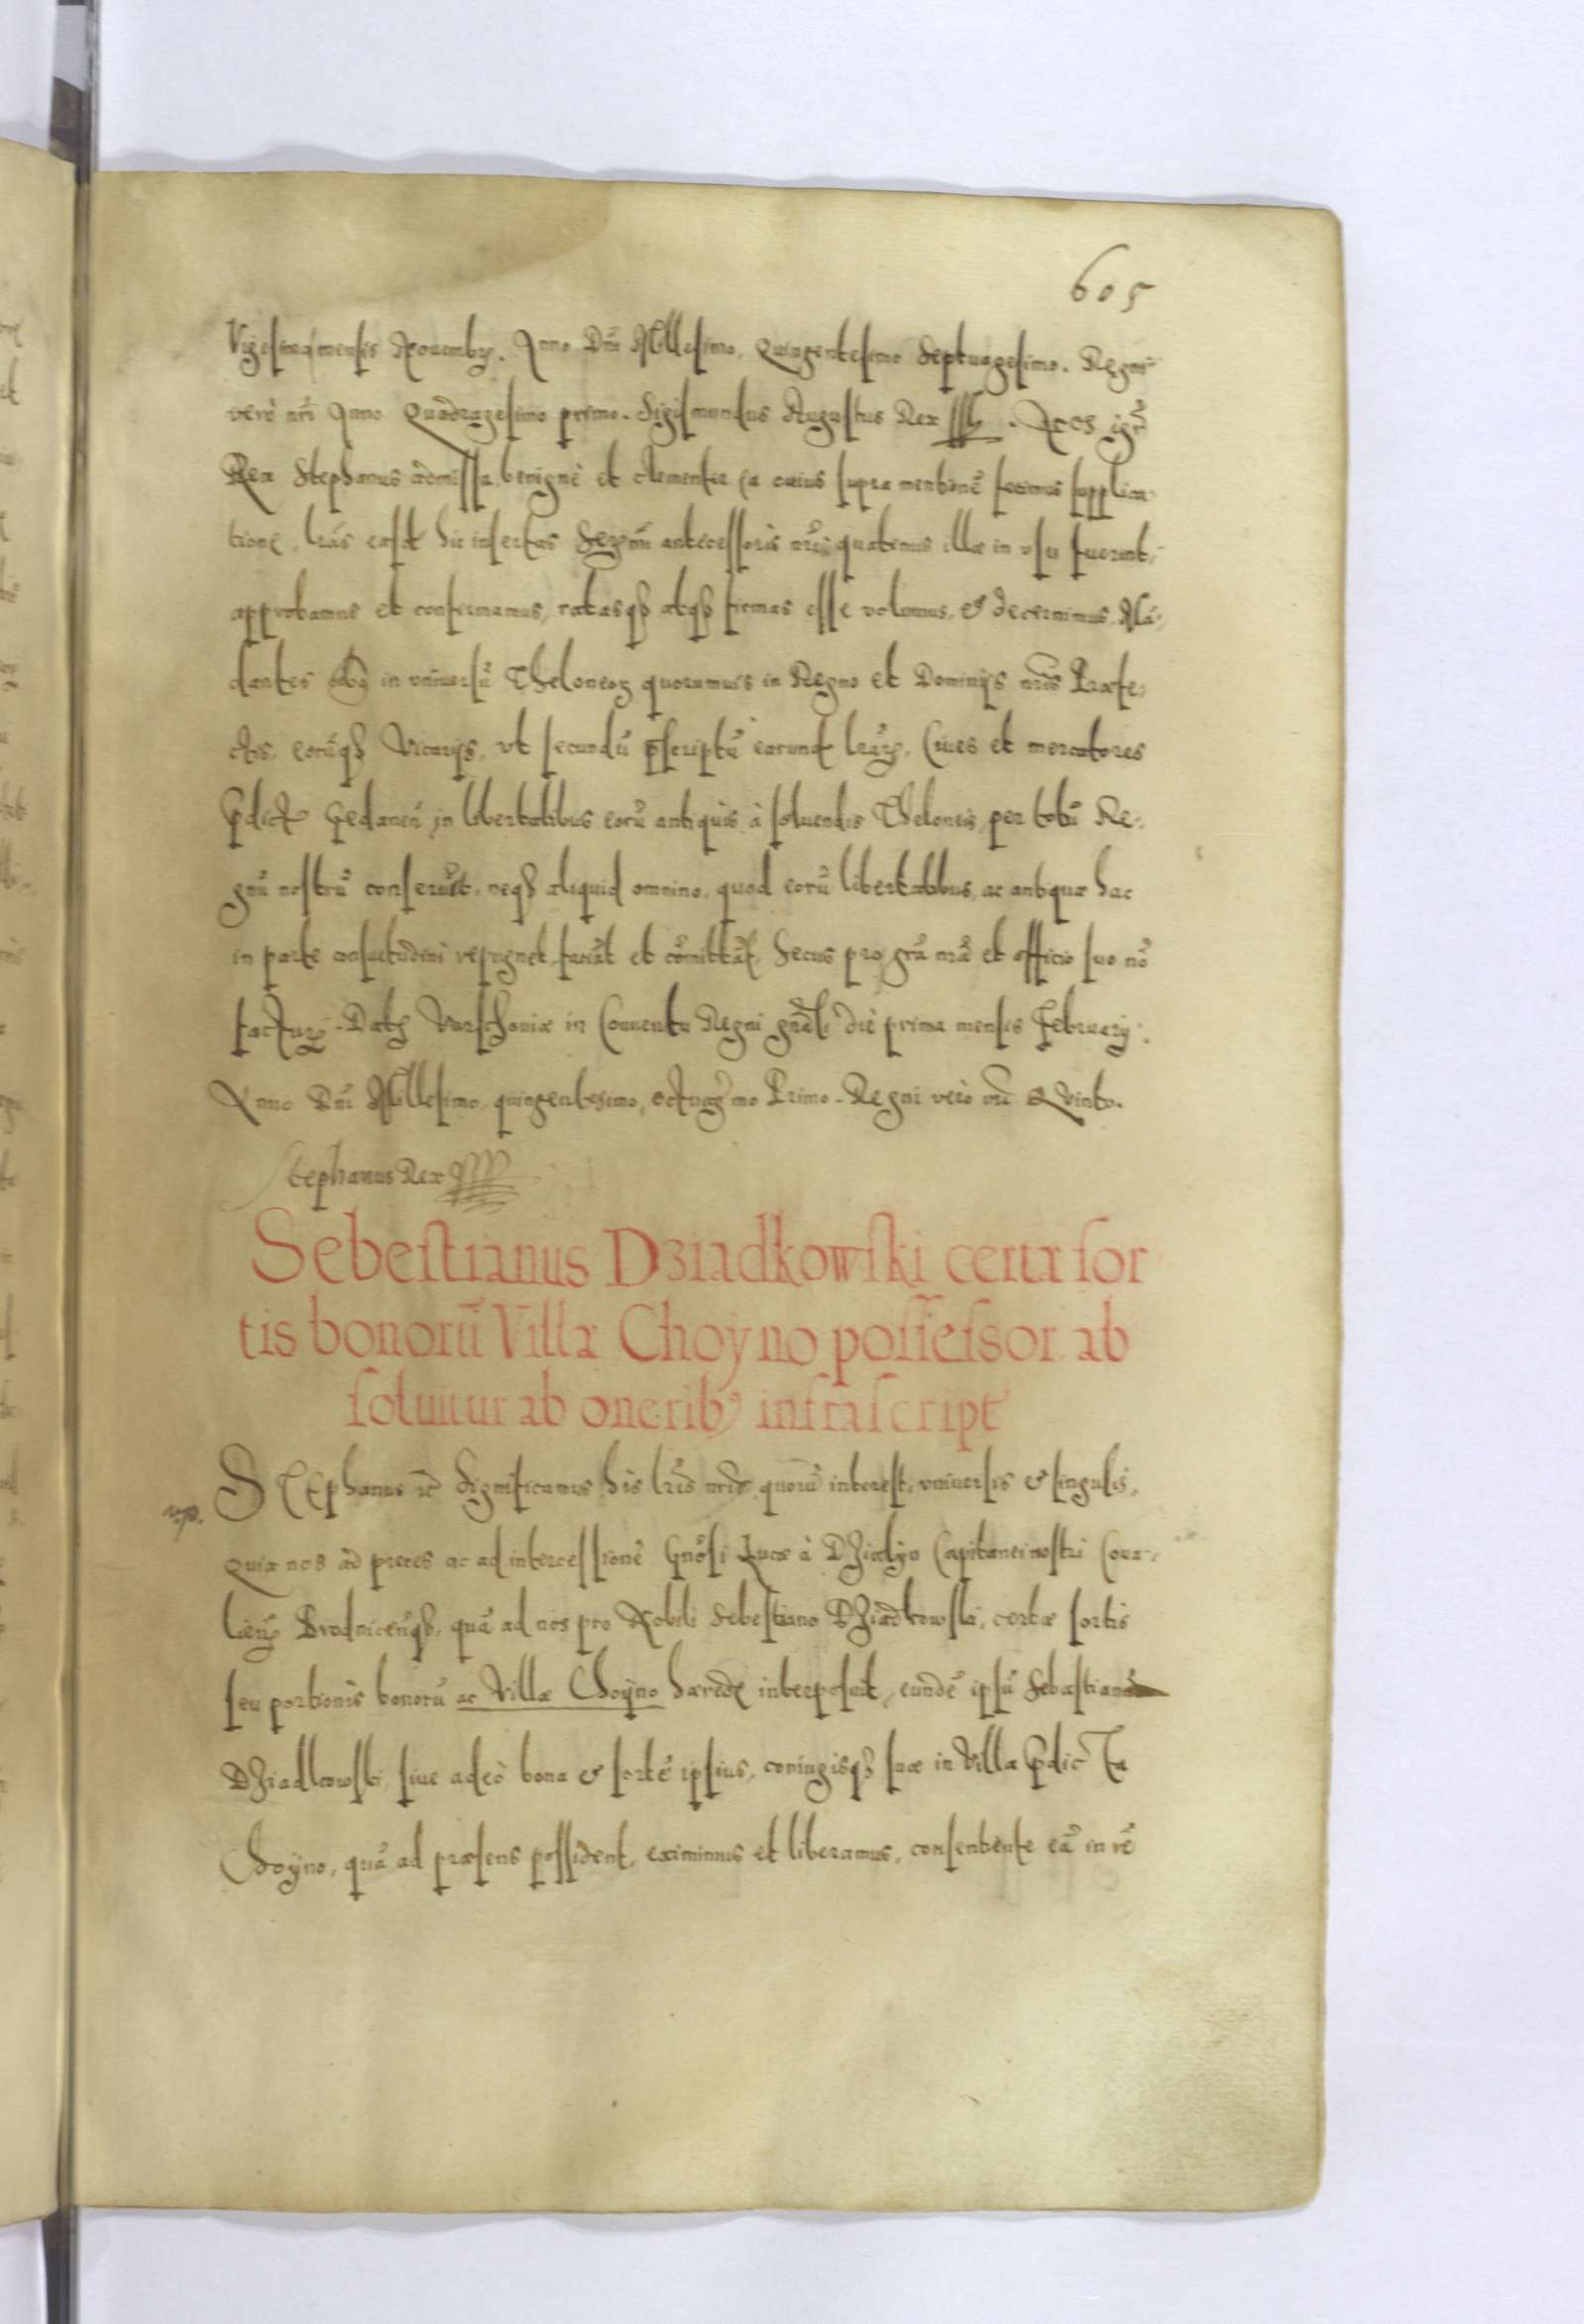 605
Vigesima mensis Nouembr. Anno Dni Millesimo, Quingentesimo Septuagesimo. Regni
vero nri Anno Quadragesimo primo. Sigismundus Augustus Rex. Nos igr
Rex Stephanus admissa benignè et clementer ea cuius supra mentionē fecimus supplica-
tione, lrās easd hic insertas Sermi antecessoris nri, quatenus illæ in vsu fuerint,
approbamus et confirmamus, ratasqȝ atqȝ firmas esse volumus, & decernimus. Mā-
dantes in vniuersū Theloneoꝝ quorumuis in Regno et Dominijs nris Præfe-
ctis, eorūqȝ Vicarijs, vt secundū pscriptū earund lrarꝝ, Ciues et mercatores
Pdict Gedaneñ in libertatibus eorū antiquis à soluendis Theloneis, per totū Re-
gnū nostrū conseruēt, neqȝ aliquid omnino, quod eorū libertatibus, ac antiquæ hac
in parte consuetudini repugnet, faciāt et cōmittāt, Secus pro grā nrā et officio suo nō
facturi. Datꝫ Varschouiæ in Conuentu Regni gnāli die prima mensis February.
Anno Dni Millesimo, quingentesimo, octuagmo Primo. Regni verò nri Quinto.
Stephanus Rex
Sebestianus Dziadkowski certæ sor
tis bonorū Villæ Choyno possessor ab
soluitur ab oneribꝰ infrascript
STEphanus rc Significamus his lris nris quorū interest, vniuersis & singulis,
Quia nos ad preces ac ad intercessionē Gnosi Lucæ à Dzialyn Capitanei nostri Coua-
lieñ Brodniceñqȝ, quā ad nos pro Nobili Sebestiano Dziadkowski, certæ sortis
seu portionis bonorū ac Villæ Choyno hærede interposuit, eundē ipsū Sebastianū
Dziadkowski, siue adeò bona & sortē ipsius, coniugisqȝ suæ in Villa Pdicta
Choyno, quā ad præsens possident, eximimus et liberamus, consentiente eā in rē